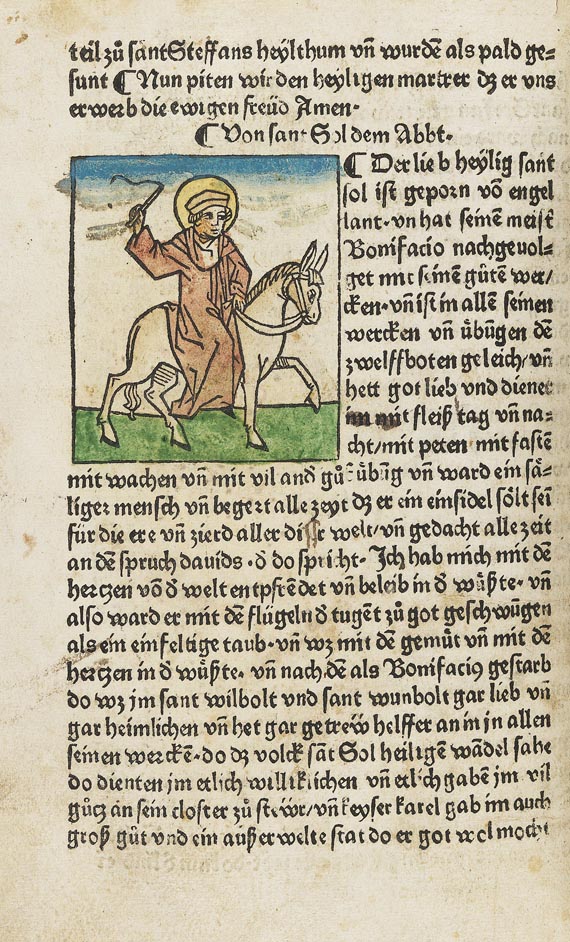 teil zů sant Steffans heylthum vñ wurdẽ als pald ge=
sunt ¶ Nun piten wir den heyligen martrer dz er vns
erwerb die ewigen freüd Amen·
¶ Von sant Sol dem Abbt·
¶ Der lieb heylig sant
sol ist geporn võ engel
lant·vn hat seinẽ meist
Bonifacio nachgeuol=
get mit seinẽ gůtẽ wer/
cken·vñ ist in allẽ seinen
wercken vñ übůgen dẽ
zwelffboten geleich/vñ
hett got lieb vnd dienet
im mit fleiß tag vñ na=
cht/mit peten mit fastẽ
mit wachen vñ mit vil and gů übũg vñ ward ein sä=
liger mensch vñ begert alle zeyt dz er ein einsidel sölt sein
für die ere vñ zierd aller diser welt/vñ gedacht alle zeit
an dẽ spruch dauids·d do spricht·Ich hab mich mit dẽ
hertzen võ d welt entpfrẽdet vñ beleib in d wůßte·vñ
also ward er mit dẽ flügeln d tugẽt zů got geschwũgen
als ein einfeltige taub·vñ wz mit dẽ gemůt vñ mit dẽ
hertzen in d wůßte·vñ nach dẽ als Bonifaciꝰ gestarb
do wz jm sant wilbolt vnd sant wunbolt gar lieb vñ
gar heimlichen vñ het gar getrew helffer an in jn allen
seinen wercken·do dz volck sãt Sol heiligẽ wãdel sahe
do dienten jm etlich williklichen vñ etlich gabẽ jm vil
gůtz an sein closter zů stewr/vñ keyser karel gab im auch
groß gůt vnd ein außerwelte stat do er got wol mocht